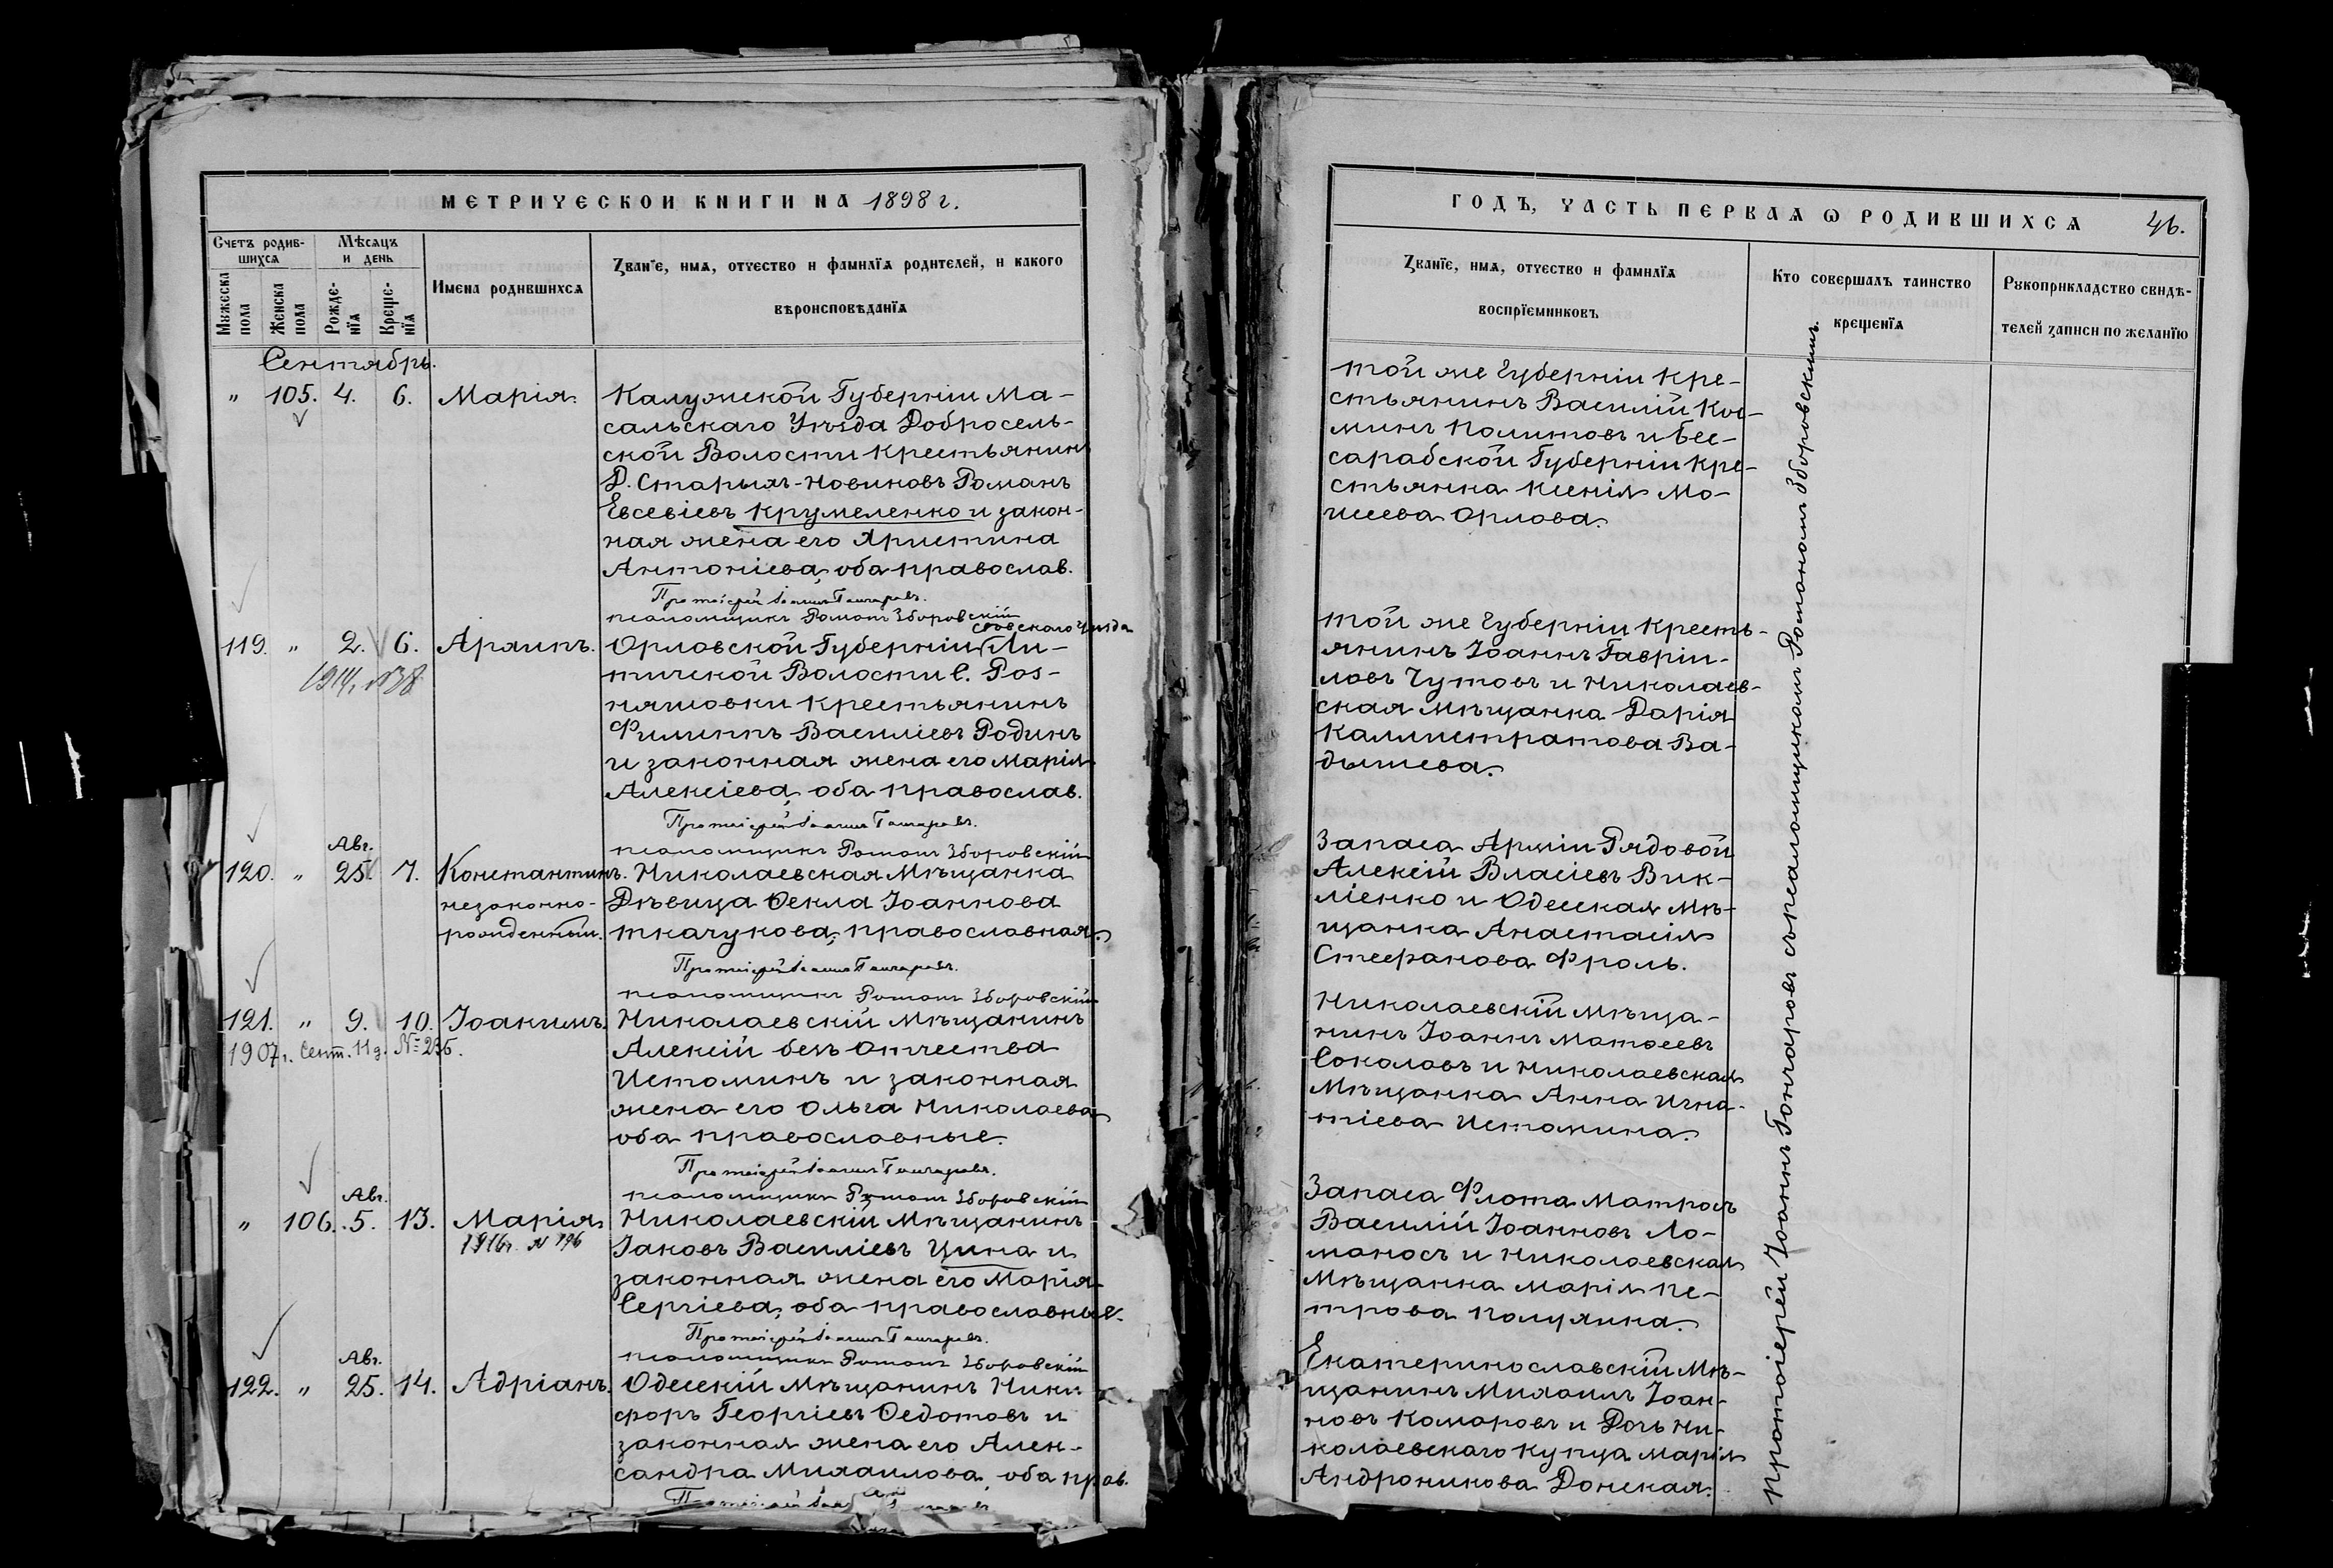 МЕТРИЧЕСКОЙ КНИГИ НА 1898 г.
Счетъ родив-
шихся
Мѣсяцъ
и день
Мужеска
пола
Женска
пола
Рожде-
нія
Креще-
нія
Имена родившихся
Званіе, имя, отчество и фамилія родителей, и какого
вѣроисповѣданія
Сентябрь.
" 105. 4. 6. Марія.
Калужской Губерніи Ма-
сальскаго Уѣзда Добросель-
ской Волости крестьянинъ
Д. Старыхъ-Новиковъ Романъ
Евсевіевъ Крумеленко и закон-
ная жена его Христина
Антоніева, оба православ.
Протоіерей Іоаннъ Гончаровъ.
псаломщикъ Романъ Зборовскій
119. " 2. 6. Архипъ.
1914, №38
Орловской Губерніи Сѣвскаго Уѣзда Ли-
тичской Волости С. Роз-
няшовки крестьянинъ
Филиппъ Василіевъ Родинъ
и законная жена его Марія
Алексіева, оба православ.
Протоіерей Іоаннъ Гончаровъ.
псаломщикъ Романъ Зборовскій
Авг.
120. " 25. 7. Константинъ.
незаконно-
рожденный.
Николаевская Мѣщанка
Дѣвица Ѳекла Іоаннова
Ткачукова, православная.
Протоіерей Іоаннъ Гончаровъ.
псаломщикъ Романъ Зборовскій
121. " 9. 10. Іоакимъ.
1907г. Сент. 11 д. №235.
Николаевскій Мѣщанинъ
Алексій безъ отчества
Истоминъ и законная
жена его Ольга Николаева
оба православные.
Протоіерей Іоаннъ Гончаровъ.
псаломщикъ Романъ Зборовскій
Авг.
" 106. 5. 13. Марія
1916г. № 196
Николаевскій Мѣщанинъ
Іаковъ Василіевъ Цина и
законная жена его Марія
Сергіева, оба православные.
Протоіерей Іоаннъ Гончаровъ.
псаломщикъ Романъ Зборовскій
Авг.
122. " 25. 14. Адріанъ.
Одесскій Мѣщанинъ Ники-
форъ Георгіевъ Ѳедотовъ и
законная жена его Алек-
сандра Михаилова, оба прав.
ГОДЪ, ЧАСТЬ ПЕРВАЯ Ѡ РОДИВШИХСЯ
46.
Званіе, имя, отчество и фамилія
воспріемниковъ
Кто совершалъ таинство
крещенія
Рукоприкладство свидѣ-
телей записи по желанію
той же Губерніи кре-
стьянинъ Василій Кос-
минъ Политовъ и Бес-
сарабской Губерніи кре-
стьянка Ксенія Мо-
исеева Орлова.
той же Губерніи кресть-
янинъ Іоаннъ Гавріи-
ловъ Чутовъ и Николаев-
ская Мѣщанка Дарія
Каллистратова Ва-
дышева.
Запаса Арміи Рядовой
Алексій Власіевъ Вик-
ліенко и Одесская Мѣ-
щанка Анастасія
Стефанова Фроль.
Николаевскій Мѣща-
нинъ Іоаннъ Матѳеевъ
Соколовъ и Николаевская
Мѣщанка Анна Игна-
тіева Истомина.
Запаса Флота Матросъ
Василій Іоанновъ Ло-
маносъ и Николаевская
Мѣщанка Марія Пе-
трова Полухина.
Екатеринославскій Мѣ-
щанинъ Михаилъ Іоан-
новъ Комаровъ и Дочь Ни-
колаевскаго Купца Марія
Андроникова Донская.
Протоіерей Іоаннъ Гончаровъ съ псаломщикомъ Романомъ Зборовскимъ.